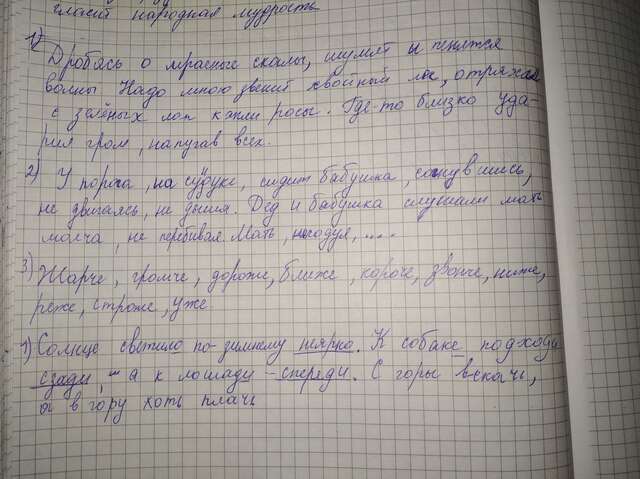 гласит народная мудрость
1) Дробясь о мрасные скалы, шумят и пенятся
волны Надо мною звенит хвойный лес, отряхая
с зелёных лап капли росы. Где-то близко уда-
рил гром, напугав всех.
2) У порога, на сундуке, сидит бабушка, согнувшись,
не двигаясь, не дыша. Дед и бабушка слушали мать
молча, не перебивая. Мать, негодуя, ....
3) Жарче, громче, дороже, ближе, короче, звонче, ниже,
реже, строже, уже.
1) Солнце светило по-зимнему неярко. К собаке подходи
сзади, - а к лошади - спереди. С горы вскачь,
а в гору хоть плачь